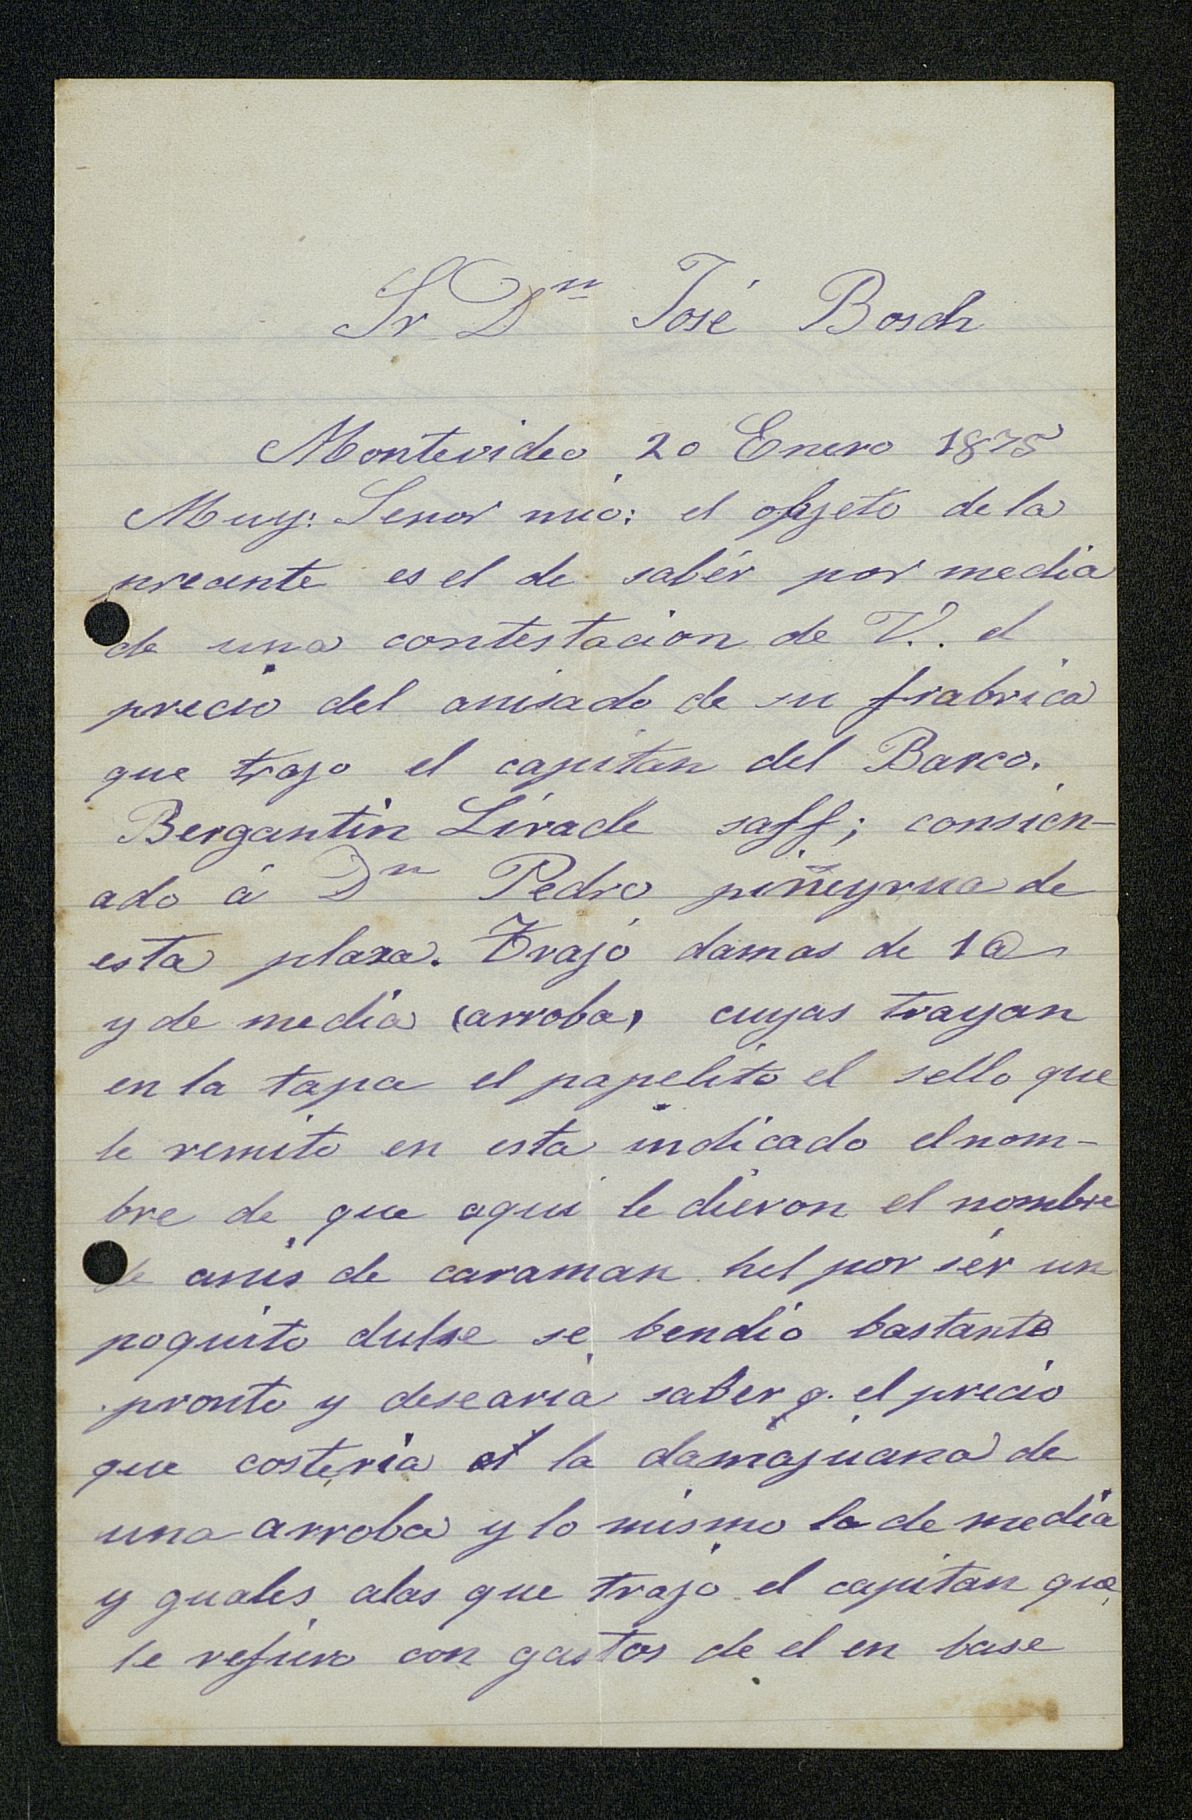 Sr Dn José Bosch
Montevideo 20 Enero 1875
Muy: Senor mio: el objeto de la
precente es el de sabér por media
de una contestacion de V. el
precio del anisado de su frabrica
que trajo el capitan del Barco.
Bergantin Lirade saff; consicn-
ado á Dn Pedro piñeyrua de
esta plaza. Trajo damas de 1 @
y de media (arroba) cuyas trayan
en la tapa el papelito el sello que
le remito en esta indicado el nom-
bre de que aqui le dieron el nombre
de anis de caraman hel por sér un
poquito dulse se bendio bastante
pronto y desearia saber q. el precio
que costeria el la damajuana de
una arroba y lo mismo la de media
y guales alas que trajo el capitan que
le refiero con gastos de el en base